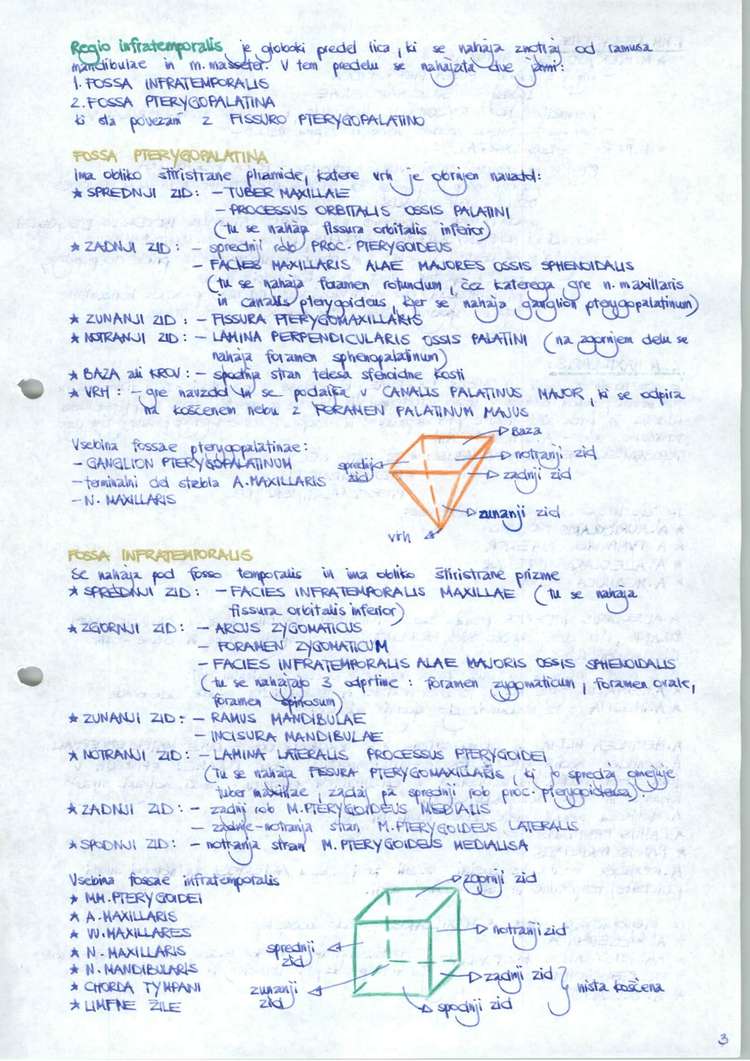 Regio infratemporalis je globoki predel lica, ki se nahaja znotraj od ramusa
mandibulae in m. masseter. V tem predelu se nahajata dve jami:
1. FOSSA INFRATEMPORALIS
2. FOSSA PTERYGOPALATINA
ki sta povezani z FISSURO PTERYGOPALATINO
FOSSA PTERYGOPALATINA
ima obliko štiristrane piramide, katere vrh je obrnjen navzdol:
* SPREDNJI ZID: - TUBER MAXILLAE
- PROCESSUS ORBITALIS OSSIS PALATINI
(tu se nahaja fissura orbitalis inferior)
* ZADNJI ZID: - sprednji rob PROC. PTERYGOIDEUS
- FACIES MAXILLARIS ALAE MAJORES OSSIS SPHENOIDALIS
(tu se nahaja foramen rotundum, čez katerega gre n. maxillaris
in canalis pterygoideus, kjer se nahaja ganglion pterygopalatinum)
* ZUNANJI ZID: - FISSURA PTERYGOMAXILLARIS
* NOTRANJI ZID: - LAMINA PERPENDICULARIS OSSIS PALATINI (na zgornjem delu se
nahaja foramen sphenopalatinum)
* BAZA ali KROV: - spodnja stran telesa sfenoidne kosti
* VRH: - gre navzdol in se podaljša v CANALIS PALATINUS MAJOR, ki se odpira
na koščenem nebu z FORAMEN PALATINUM MAJUS
Vsebina fossae pterygopalatinae:
- GANGLION PTERYGOPALATINUM
- terminalni del stebla A. MAXILLARIS
- N. MAXILLARIS
Baza
notranji zid
sprednji
zid
zadnji zid
zunanji zid
vrh
FOSSA INFRATEMPORALIS
Se nahaja pod fosso temporalis in ima obliko štiristrane prizme
* SPREDNJI ZID: - FACIES INFRATEMPORALIS MAXILLAE (tu se nahaja
fissura orbitalis inferior)
* ZGORNJI ZID: - ARCUS ZYGOMATICUS
- FORAMEN ZYGOMATICUM
- FACIES INFRATEMPORALIS ALAE MAJORIS OSSIS SPHENOIDALIS
(tu se nahajajo 3 odprtine: foramen zygomaticum, foramen ovale,
foramen spinosum)
* ZUNANJI ZID: - RAMUS MANDIBULAE
- INCISURA MANDIBULAE
* NOTRANJI ZID: - LAMINA LATERALIS PROCESSUS PTERYGOIDEI
(Tu se nahaja FISSURA PTERYGOMAXILLARIS, ki jo spredaj omejuje
tuber maxillae, zadaj pa sprednji rob proc. pterygoideusa).
* ZADNJI ZID: - zadnji rob M. PTERYGOIDEUS MEDIALIS
- zadnje-notranja stran M. PTERYGOIDEUS LATERALIS
* SPODNJI ZID: - notranja stran M. PTERYGOIDEUS MEDIALISA
Vsebina fossae infratemporalis
* MM. PTERYGOIDEI
* A. MAXILLARIS
* VV. MAXILLARES
* N. MAXILLARIS
* N. MANDIBULARIS
* CHORDA TYMPANI
* LIMFNE ŽILE
zgornji zid
notranji zid
sprednji
zid
zadnji zid
zunanji
zid
nista koščena
spodnji zid
3